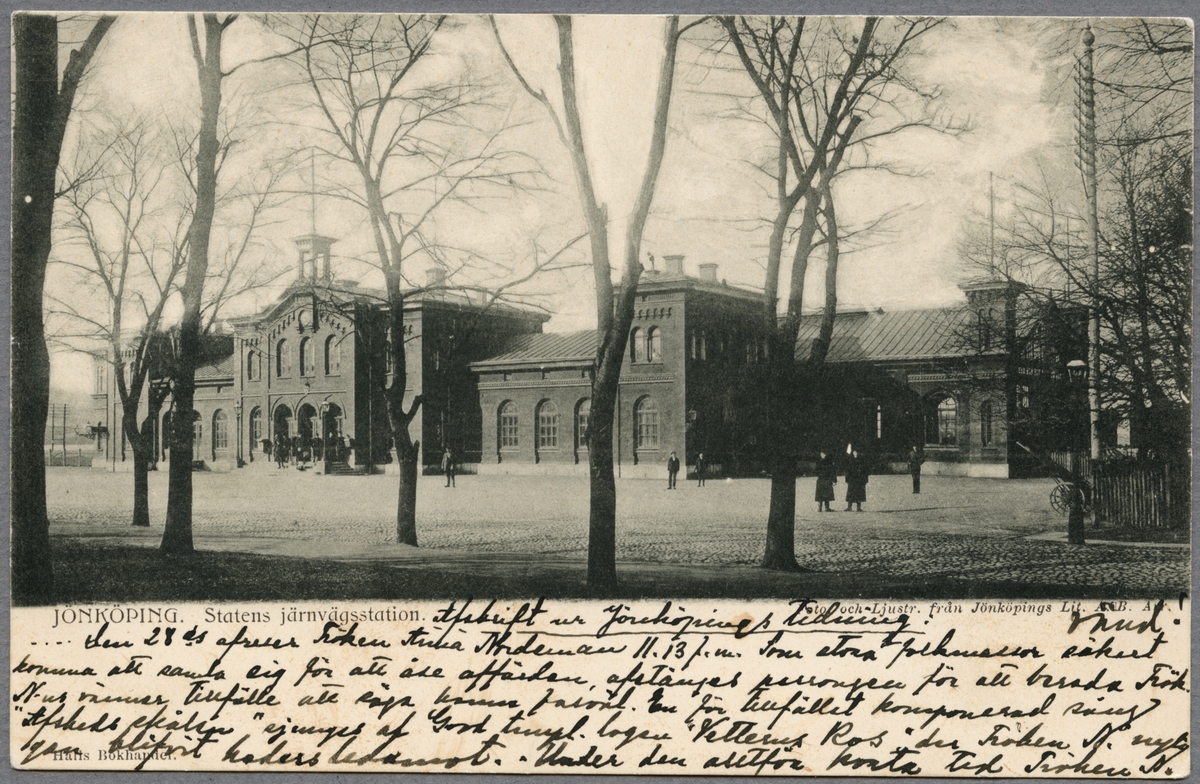 JÖNKÖPING. Statens järnvägsstation.
Foto. och Ljustr. från Jönköpings Lit. A.B.
Afskrift ur Jönköpings tidning!
.... den 28 ds afreser Fröken Anna Nordeman 11.13 f.m. Som stora folkmassor säkert
komma att samla sig för att åse affärden, afstänges perrongen för att bereda Frök.
N:us vänner tillfälle att säga henne farväl. En för tillfället komponerad sång
"Afskeds " sjunges af Good templ. logen "Vetterns Ros" der Fröken N. nylig
blifvit hedersledamot. - Under den korta tid Fröken N.
Halls Bokhandel.